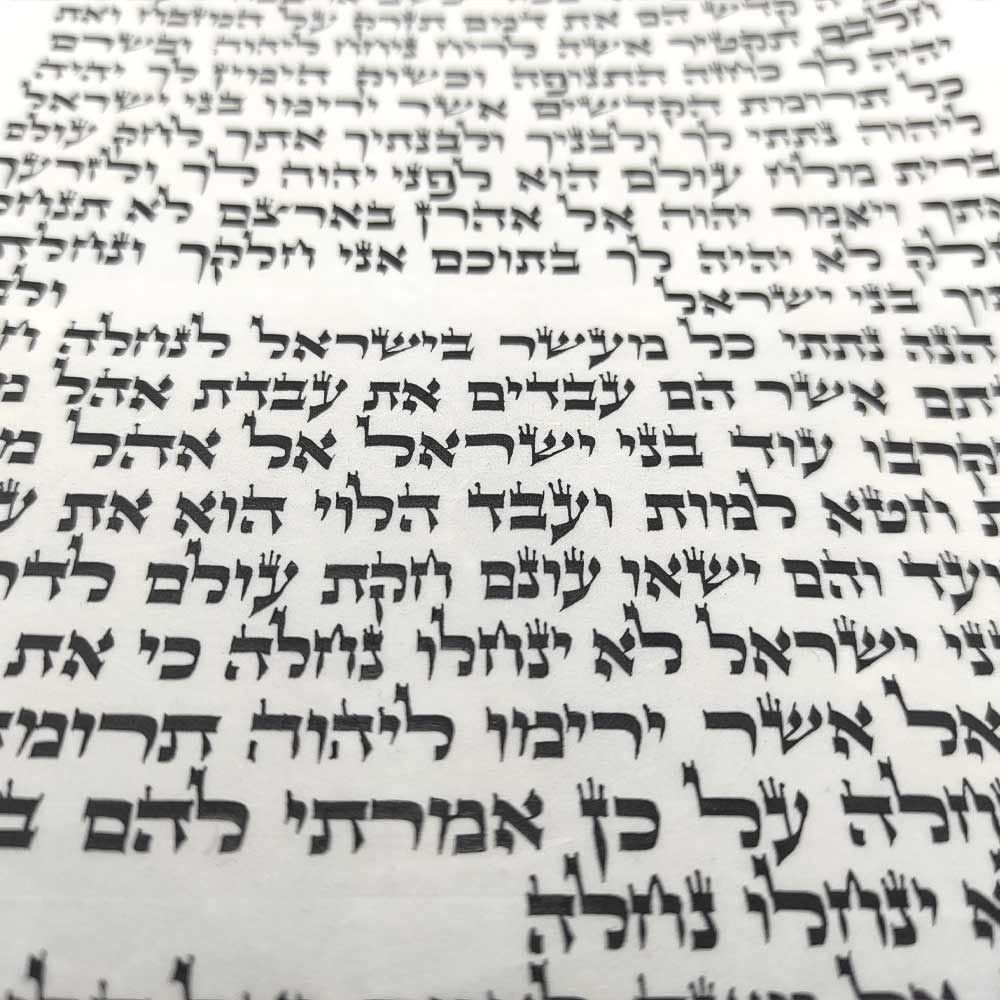 קדש הם את דמם תזרק על המזבח ואת
חלבם תקטיר אשה לריח ניחח ליהוה ובשרם
יהיה לך כחזה התנופה וכשוק הימין לך יהיה
כל תרומת הקדשים אשר ירימו בני ישראל
ליהוה נתתי לך ולבניך ולבנתיך אתך לחק עולם
ברית מלח עולם הוא לפני יהוה לך ולזרעך
ויאמר יהוה אל אהרן בארצם לא
לא יהיה לך בתוכם אני חלקך
בני ישראל
הנה נתתי כל מעשר בישראל לנחלה
אשר הם עבדים את עבדת אהל
יקרבו עוד בני ישראל אל אהל
חטא למות ועבד הלוי הוא את
והם ישאו עונם חקת עולם
ישראל לא ינחלו נחלה כי את
אשר ירימו ליהוה
על כן אמרתי להם
ינחלו נחלה